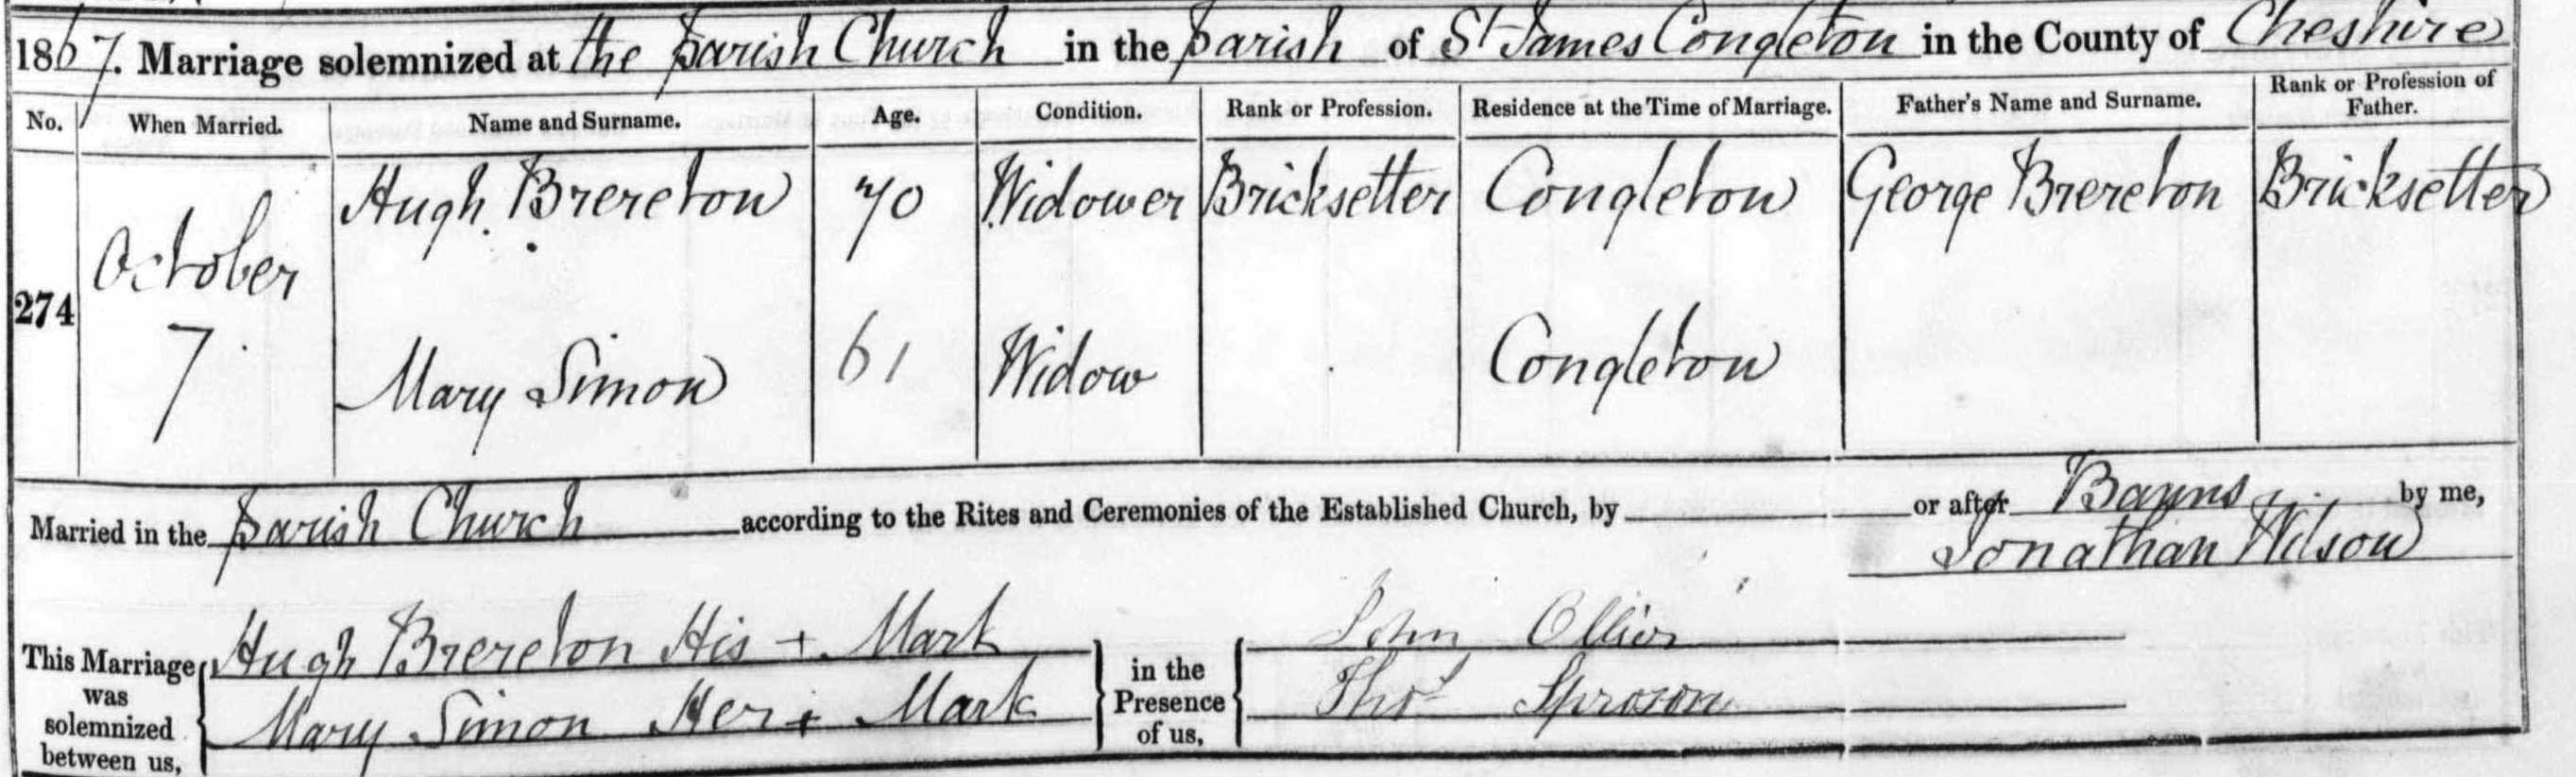 1867. Marriage solemnized at the Parish Church in the Parish of St James Congleton in the County of Cheshire
No. When Married. Name and Surname. Age. Condition. Rank or Profession. Residence at the Time of Marriage. Father's Name and Surname. Rank or Profession of Father.
274 October 7. Hugh Brereton 70 Widower Bricksetter Congleton George Brereton Bricksetter
Mary Simon 61 Widow Congleton
Married in the Parish Church according to the Rites and Ceremonies of the Established Church, by or after Banns by me,
Jonathan Wilson
This Marriage was solemnized between us, Hugh Brereton His + Mark
Mary Simon Her + Mark
in the Presence of us, John Ollier
Thos Sproson